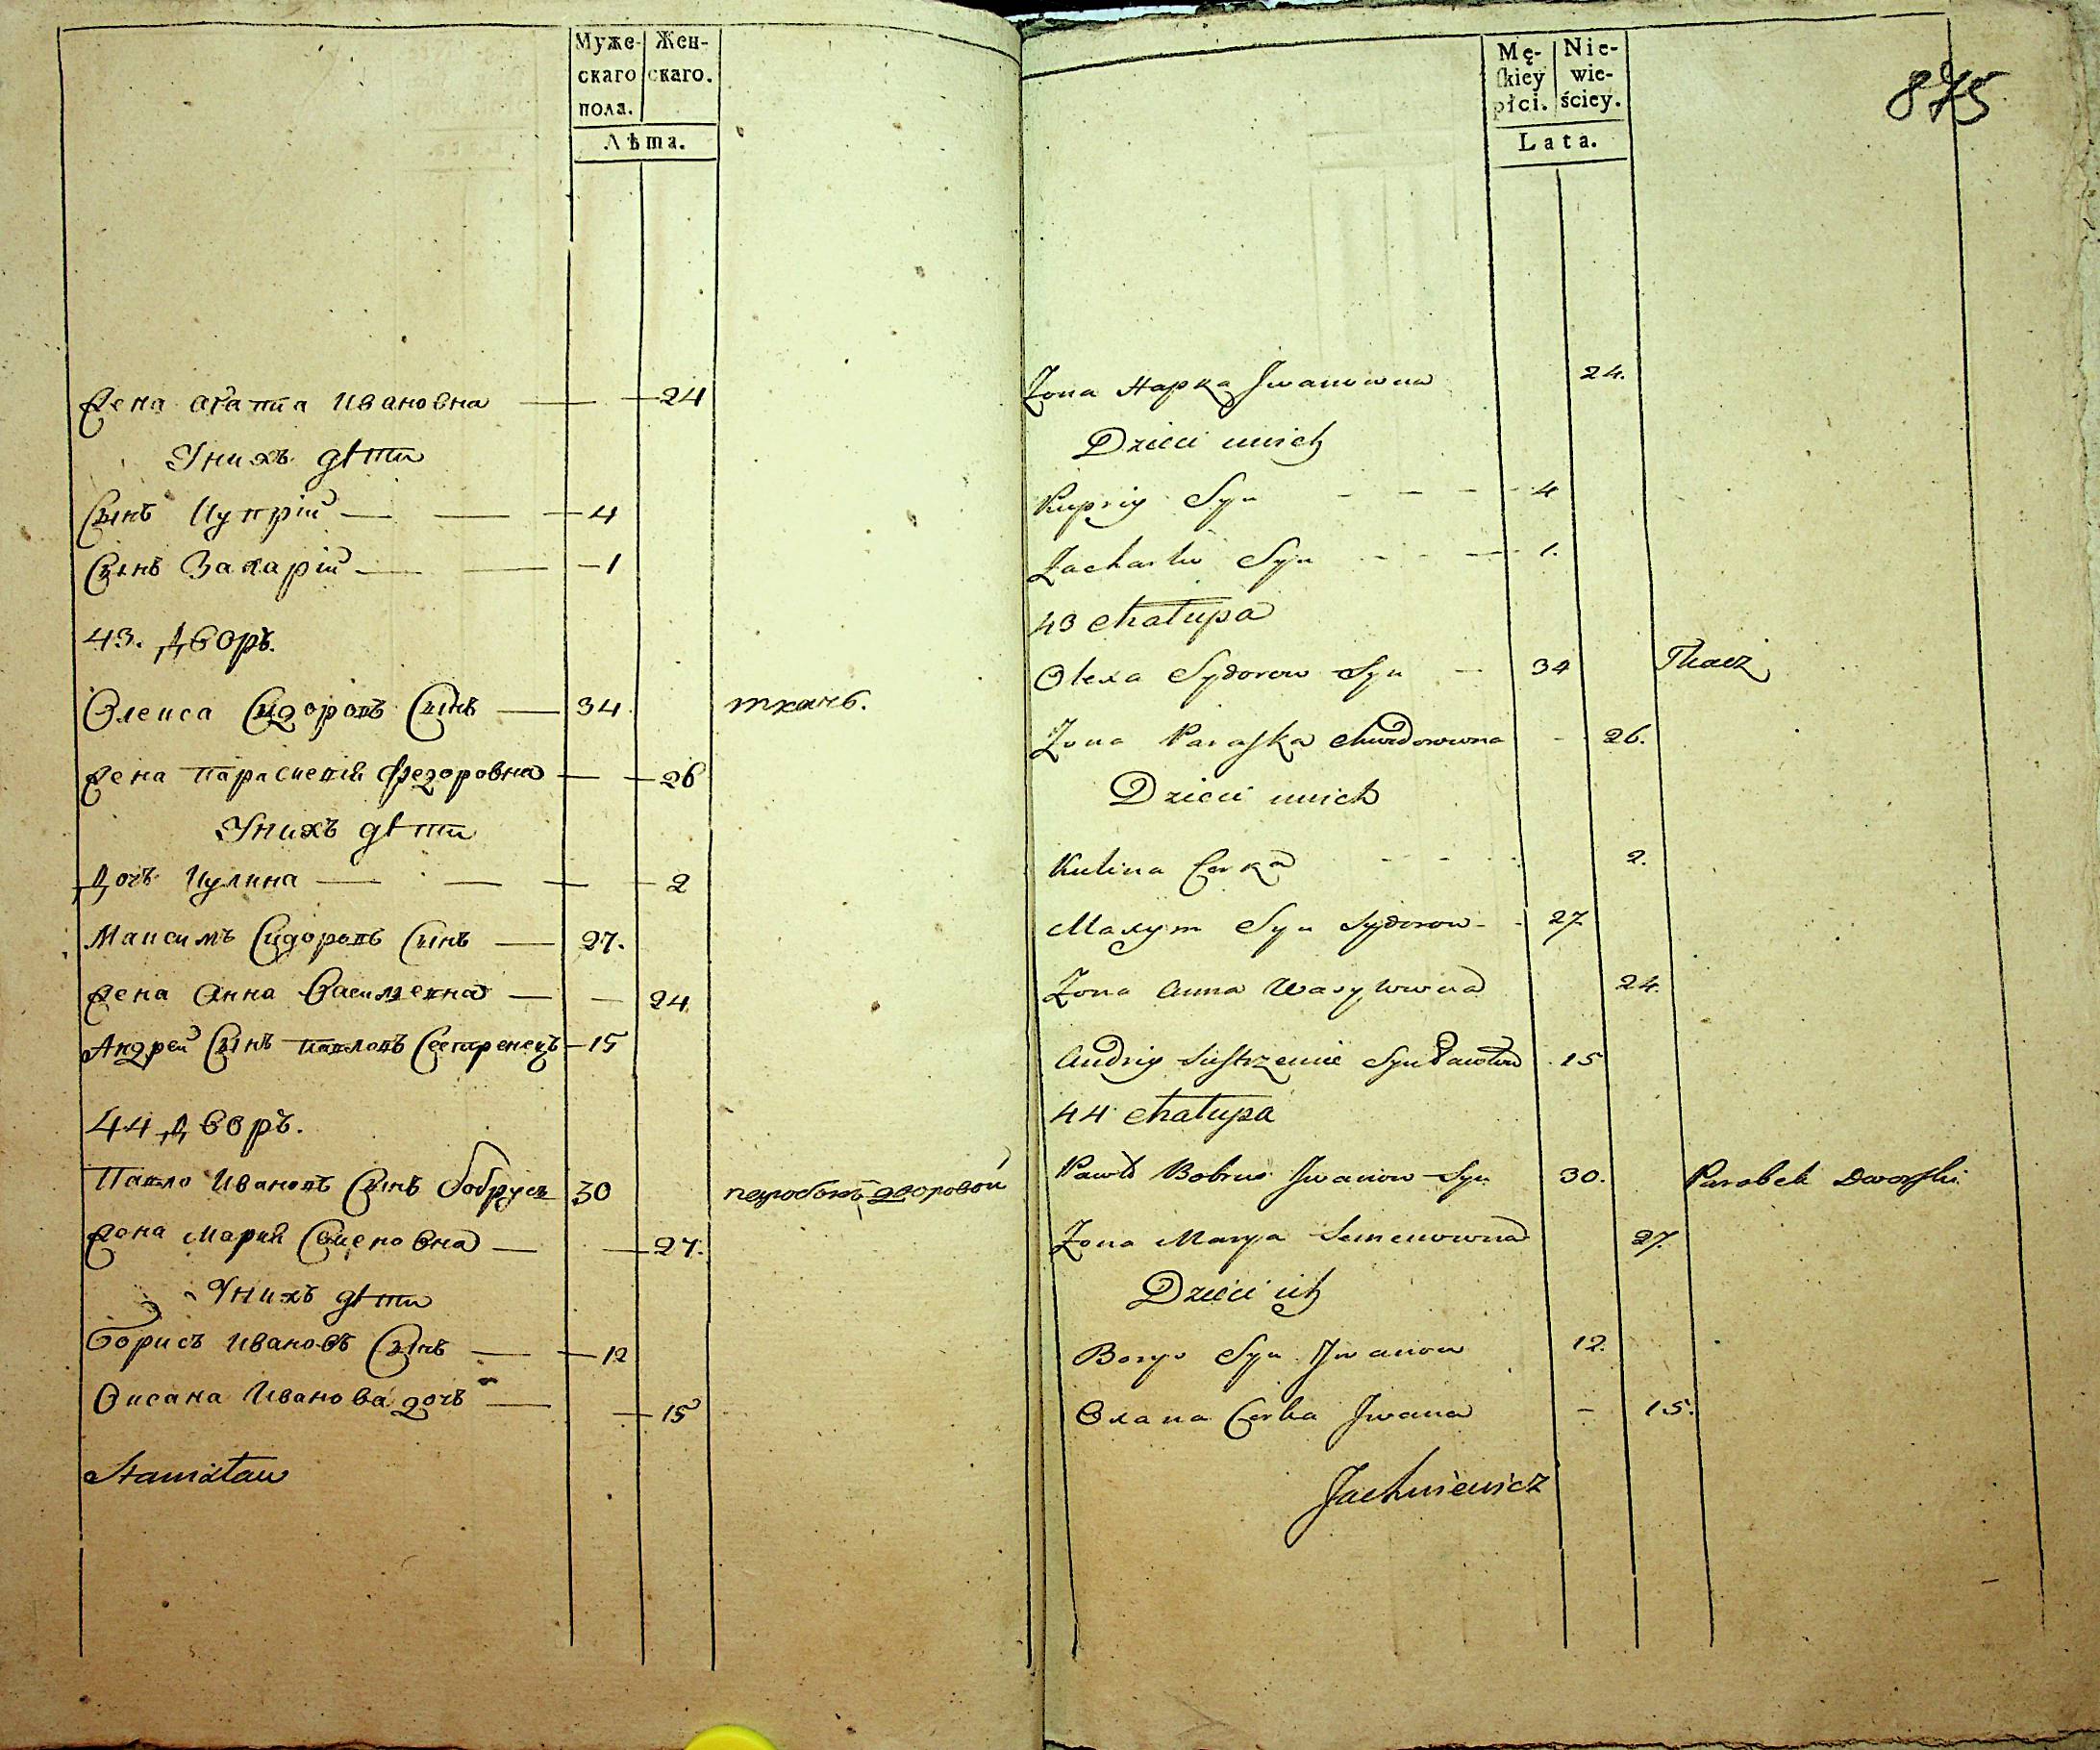 Муже- Жен-
скаго скаго.
пола.
Лѣта.
Жена Агапиа Ивановна — — 24
Унихъ дѣти
Сынъ Куприй — — — 4
Сынъ Захарий — — — 1
43. Дворъ.
Олекса Сидоровъ Сынъ — 34. ткачъ.
Жена Параскевия Федоровна — — 26
Унихъ дѣти
Дочь Кулина — — — — 2
Максимъ Сидоровъ Сынъ — 27.
Жена Анна Васильевна — — 24
Андрей Сынъ Павловъ Сестренецъ — 15
44 Дворъ.
Павло Ивановъ Сынъ Бобрусь 30 паробокъ дворовой
Жена Мария Семеновна — — 27.
Унихъ дѣти
Борисъ Ивановъ Сынъ — — 12
Оксана Иванова дочь — — 15
Stanisław
875
Mę- Nie-
skiey wie-
płci. ściey.
Lata.
Żona Hapka Jwanowna 24.
Dzieci unich
Kupriy Syn - - - - 4
Zacharko Syn - - - 1.
43 Chałupa
Olexa Sydorow Syn - 34 Tkacz
Żona Paraska 26.
Dzieci unich
Kulina Corka - - - 2.
Maxym Syn Sydorow - - 27.
Żona Anna Wasylowna 24.
Andriy Siestrzeniec Syn Pawłow . 15
44 Chałupa
Pawło Bobrus Jwanow Syn 30. Parobek Dworski
Żona Marya Semenowna 27.
Dzieci ich
Borys Syn Jwanow 12.
Oxana Corka Jwana - 15.
Jachniewicz